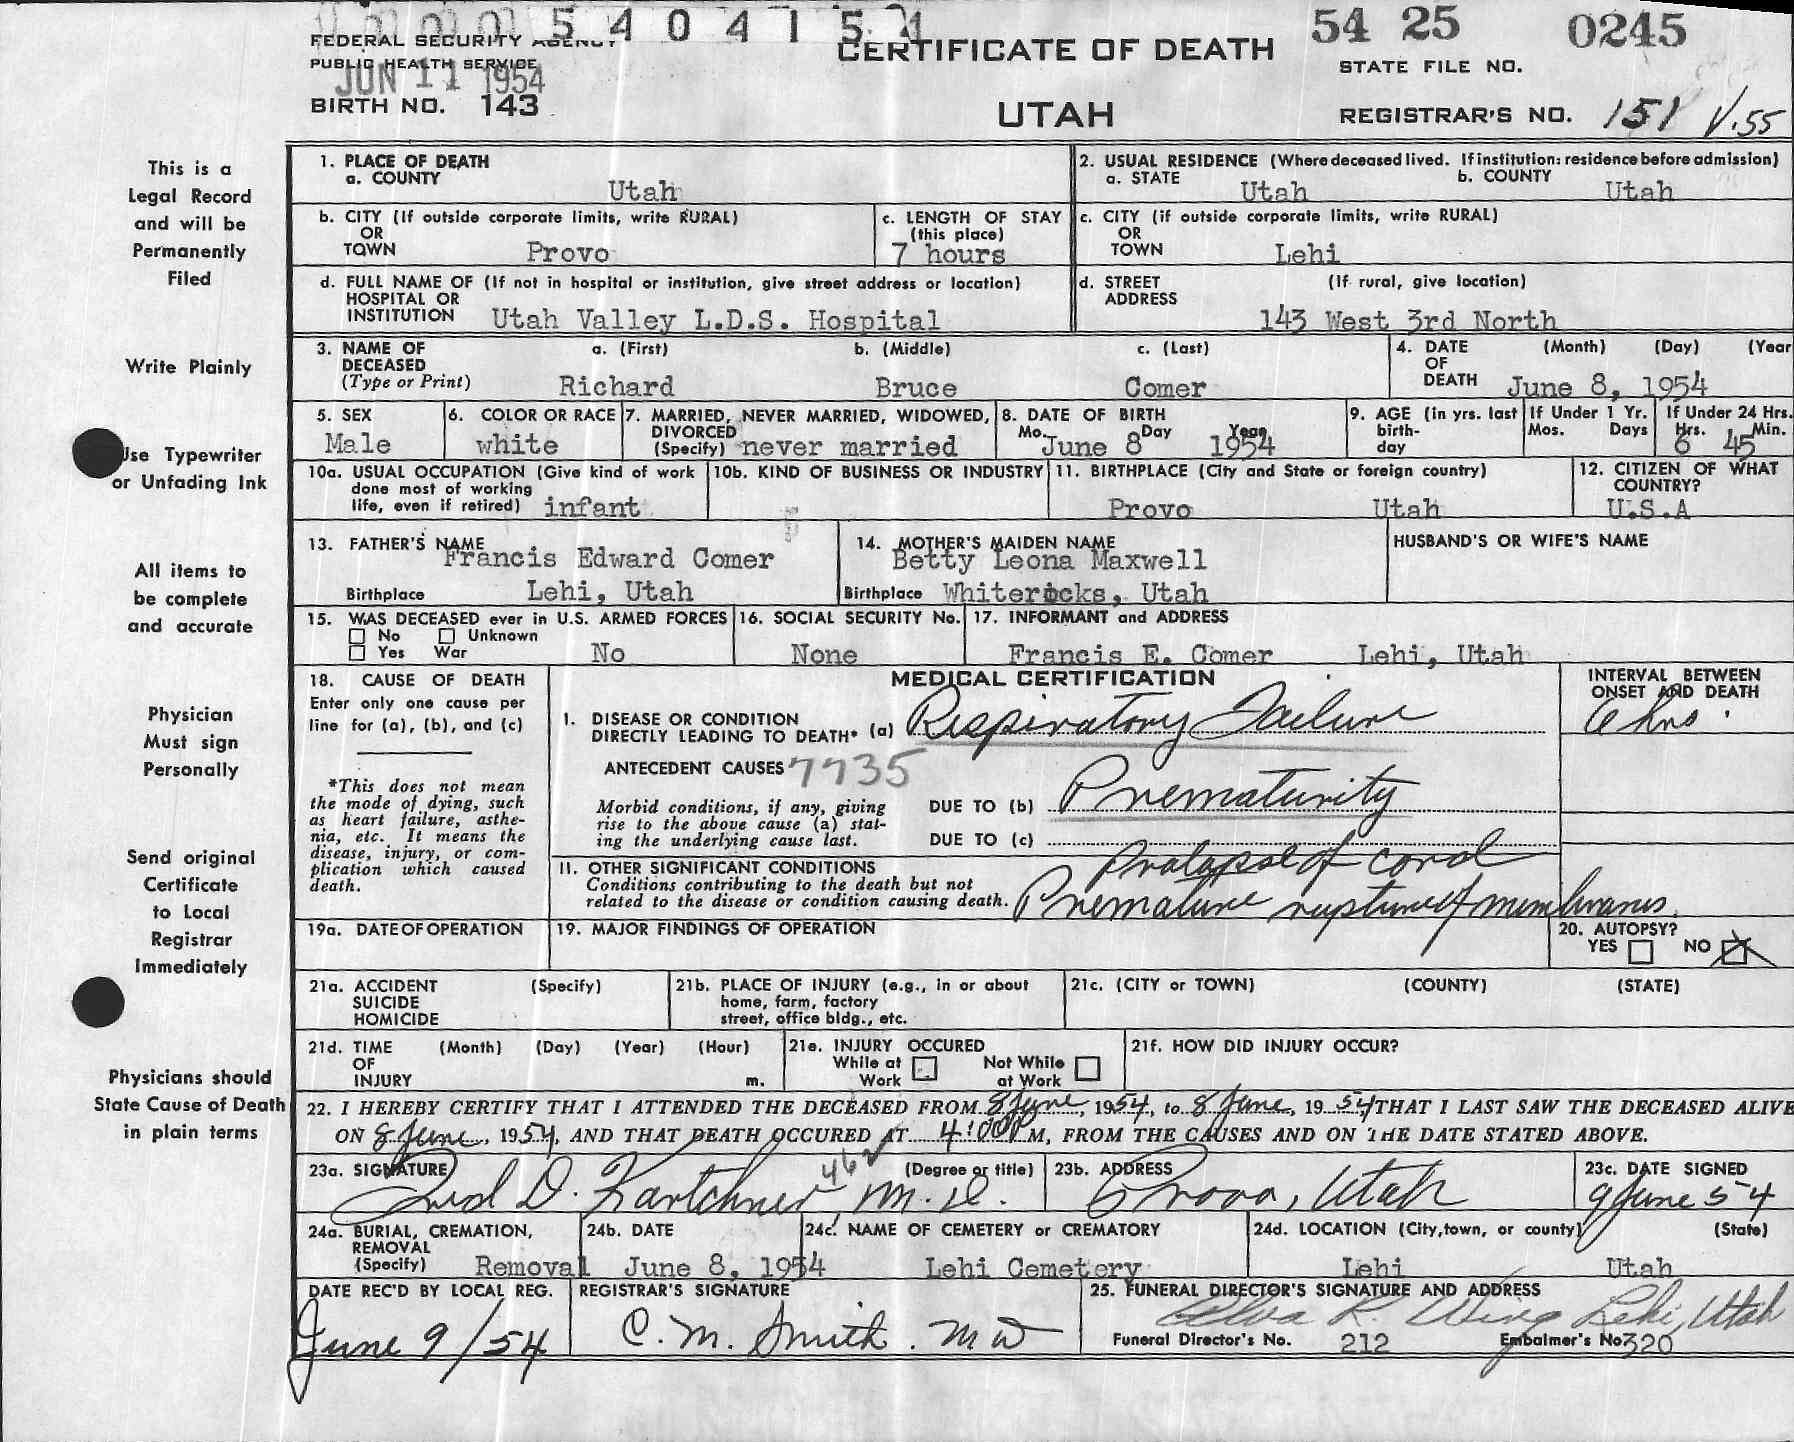 5 4 0 4 1 5 4
54 25 0245
FEDERAL SECURITY AGENCY
PUBLIC HEALTH SERVICE
JUN 11 1954
BIRTH NO. 143
CERTIFICATE OF DEATH
UTAH
STATE FILE NO.
REGISTRAR'S NO. 151 V.55
This is a
Legal Record
and will be
Permanently
Filed
Write Plainly
Use Typewriter
or Unfading Ink
All items to
be complete
and accurate
Physician
Must sign
Personally
Send original
Certificate
to Local
Registrar
Immediately
Physicians should
State Cause of Death
in plain terms
1. PLACE OF DEATH
a. COUNTY
Utah
2. USUAL RESIDENCE (Where deceased lived. If institution: residence before admission)
a. STATE Utah b. COUNTY Utah
b. CITY (If outside corporate limits, write RURAL)
OR
TOWN Provo
c. LENGTH OF STAY
(this place)
7 hours
c. CITY (if outside corporate limits, write RURAL)
OR
TOWN Lehi
d. FULL NAME OF (If not in hospital or institution, give street address or location)
HOSPITAL OR
INSTITUTION Utah Valley L.D.S. Hospital
d. STREET (If rural, give location)
ADDRESS
143 West 3rd North
3. NAME OF a. (First) b. (Middle) c. (Last)
DECEASED
(Type or Print) Richard Bruce Comer
4. DATE (Month) (Day) (Year
OF
DEATH June 8, 1954
5. SEX
Male
6. COLOR OR RACE
white
7. MARRIED, NEVER MARRIED, WIDOWED,
DIVORCED
(Specify) never married
8. DATE OF BIRTH
Mo. Day Year
June 8 1954
9. AGE (in yrs. last
birth-
day
If Under 1 Yr.
Mos. Days
If Under 24 Hrs.
Hrs. Min.
6 45
10a. USUAL OCCUPATION (Give kind of work
done most of working
life, even if retired) infant
10b. KIND OF BUSINESS OR INDUSTRY
11. BIRTHPLACE (City and State or foreign country)
Provo Utah
12. CITIZEN OF WHAT
COUNTRY?
U.S.A
13. FATHER'S NAME
Francis Edward Comer
Birthplace Lehi, Utah
14. MOTHER'S MAIDEN NAME
Betty Leona Maxwell
Birthplace Whiterocks, Utah
HUSBAND'S OR WIFE'S NAME
15. WAS DECEASED ever in U.S. ARMED FORCES
No Unknown
Yes War No
16. SOCIAL SECURITY No.
None
17. INFORMANT and ADDRESS
Francis E. Comer Lehi, Utah
18. CAUSE OF DEATH
Enter only one cause per
line for (a), (b), and (c)
*This does not mean
the mode of dying, such
as heart failure, asthe-
nia, etc. It means the
disease, injury, or com-
plication which caused
death.
MEDICAL CERTIFICATION
INTERVAL BETWEEN
ONSET AND DEATH
I. DISEASE OR CONDITION
DIRECTLY LEADING TO DEATH* (a) Respiratory Failure 6 hrs.
ANTECEDENT CAUSES 7735
Morbid conditions, if any, giving
rise to the above cause (a) stat-
ing the underlying cause last.
DUE TO (b) Prematurity
DUE TO (c)
II. OTHER SIGNIFICANT CONDITIONS
Conditions contributing to the death but not
related to the disease or condition causing death.
Prolapse of cord
Premature rupture of membranes.
19a. DATE OF OPERATION
19. MAJOR FINDINGS OF OPERATION
20. AUTOPSY?
YES NO X
21a. ACCIDENT (Specify)
SUICIDE
HOMICIDE
21b. PLACE OF INJURY (e.g., in or about
home, farm, factory
street, office bldg., etc.
21c. (CITY or TOWN) (COUNTY) (STATE)
21d. TIME (Month) (Day) (Year) (Hour)
OF
INJURY m.
21e. INJURY OCCURED
While at Work Not While at Work
21f. HOW DID INJURY OCCUR?
22. I HEREBY CERTIFY THAT I ATTENDED THE DECEASED FROM 8 June, 1954, to 8 June, 1954 THAT I LAST SAW THE DECEASED ALIVE
ON 8 June, 1954, AND THAT DEATH OCCURED AT 4:00 PM, FROM THE CAUSES AND ON THE DATE STATED ABOVE.
23a. SIGNATURE (Degree or title)
Fred D. Kartchner, M.D.
462
23b. ADDRESS
Provo, Utah
23c. DATE SIGNED
9 June 54
24a. BURIAL, CREMATION,
REMOVAL
(Specify) Removal
24b. DATE
June 8, 1954
24c. NAME OF CEMETERY or CREMATORY
Lehi Cemetery
24d. LOCATION (City, town, or county) (State)
Lehi Utah
DATE REC'D BY LOCAL REG.
June 9/54
REGISTRAR'S SIGNATURE
C. M. Smith. MD
25. FUNERAL DIRECTOR'S SIGNATURE AND ADDRESS
Alva R. Wing Lehi, Utah
Funeral Director's No. 212 Embalmer's No 320